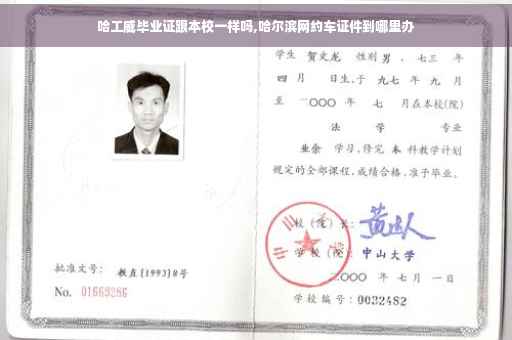 哈工威毕业证跟本校一样吗,哈尔滨网约车证件到哪里办
学生 贺文龙 性别 男 、七三 年
四 月 日生,于 九七 年 九 月
至 二〇〇〇 年 七 月在本校(院)
法 学 专业
业余 学习,修完 本 科教学计划
规定的全部课程,成绩合格,准予毕业。
校(院)长:
学校(院): 中山大学
二〇〇〇 年 七 月 一 日
学校编号: 0032482
批准文号: 教直[1993]8号
No. 01669286